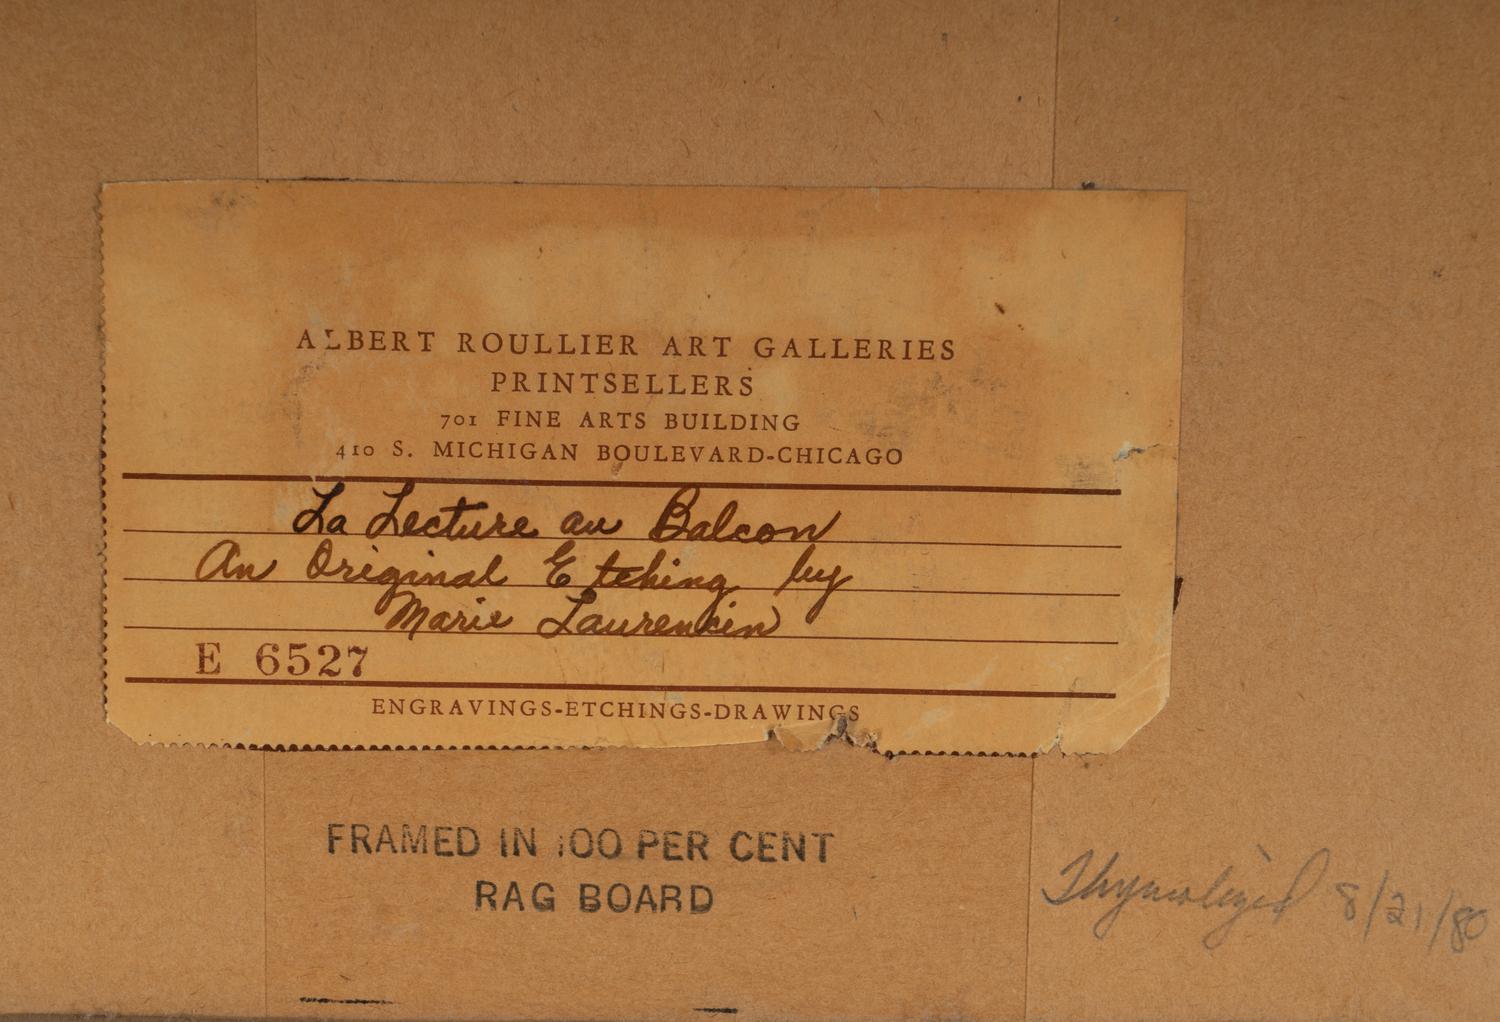 ALBERT ROULLIER ART GALLERIES
PRINTSELLERS
701 FINE ARTS BUILDING
410 S. MICHIGAN BOULEVARD-CHICAGO
La Lecture au Balcon
An Original Etching by
Marie Laurencin
E 6527
ENGRAVINGS-ETCHINGS-DRAWINGS
FRAMED IN 100 PER CENT
RAG BOARD
Thymolized 8/21/80